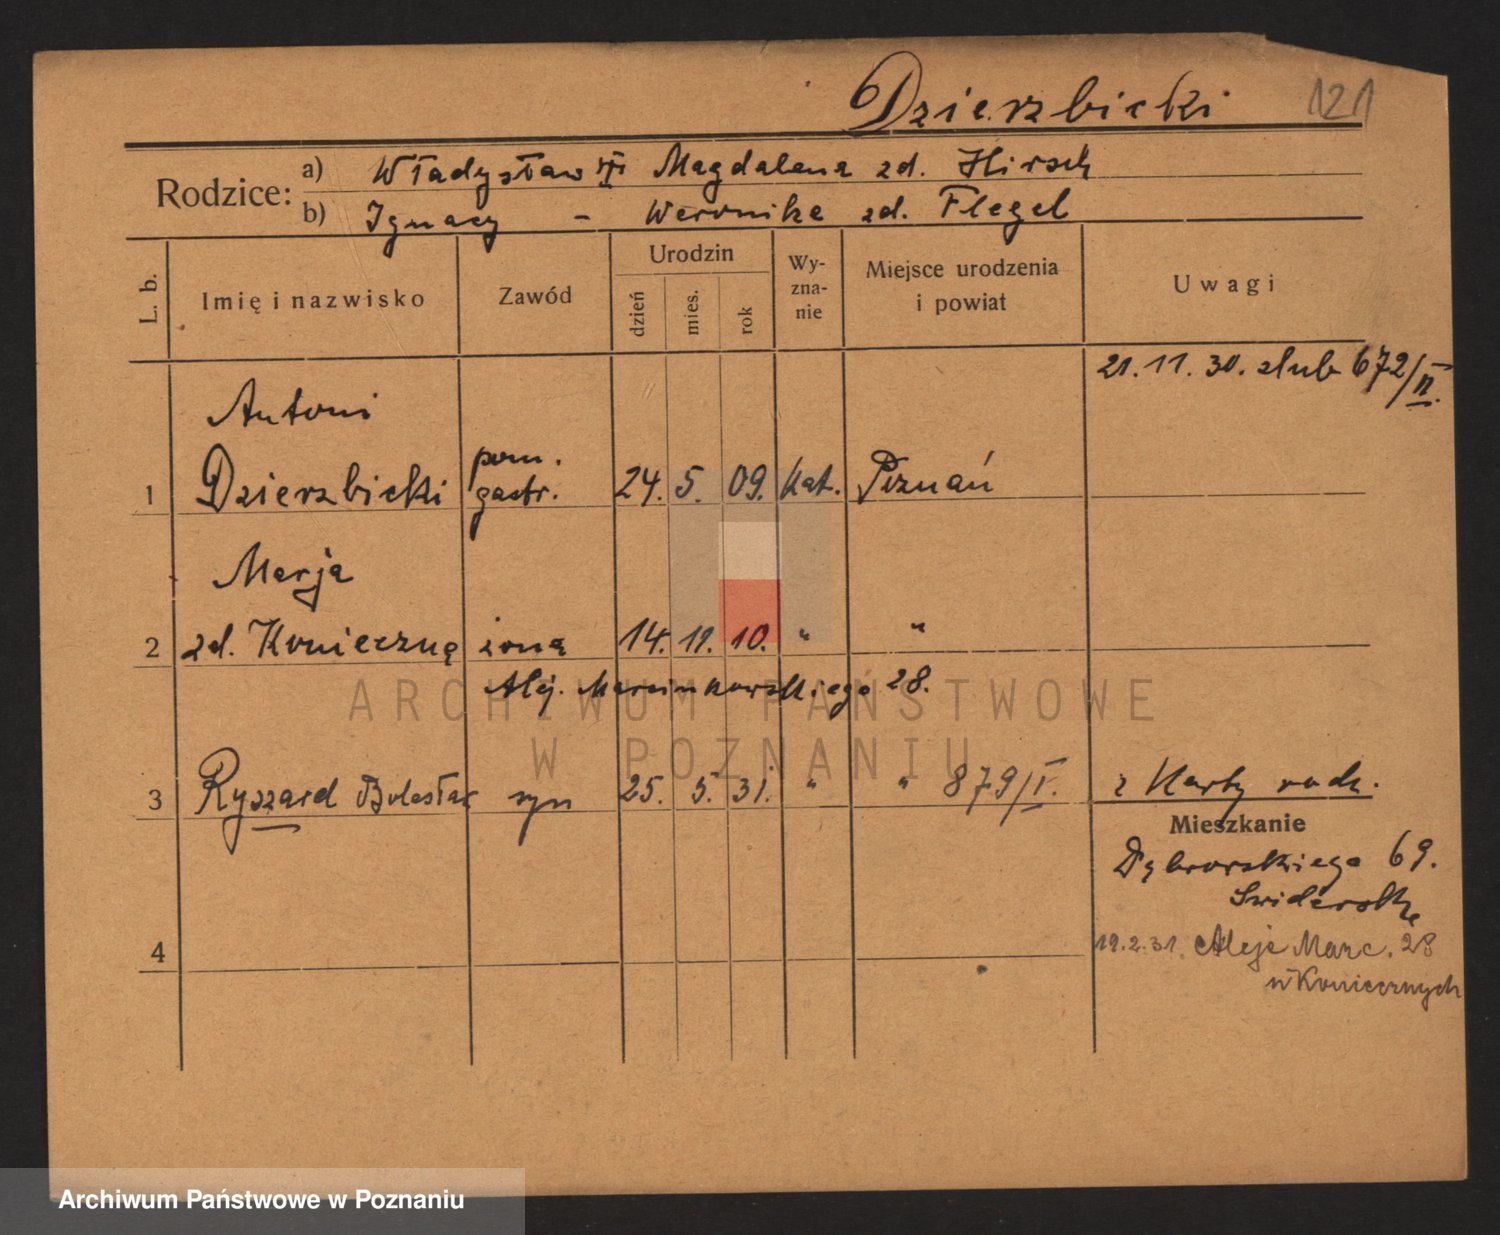 Dzierzbicki 121
Rodzice: a) Władysław Magdalena zd. Hirsch
b) Ignacy - Weronika zd. Flegel
L. b. Imię i nazwisko Zawód Urodzin dzień mies. rok Wy-zna-nie Miejsce urodzenia i powiat Uwagi
21. 11. 30. slub 672/II.
Antoni
1 Dzierzbicki pom. gastr. 24. 5. 09. kat. Poznań
Marja
2 zd. Konieczną żoną 14. 11. 10. " "
Alej. Marcinkowskiego 28.
3 Ryszard Bolesław syn 25. 5. 31. " " 879/I. z Karty rodz.
Mieszkanie
Dąbrowskiego 69.
4
19.2.31. Aleje Marc. 28
u Koniecznych
ARCHIWUM PAŃSTWOWE
W POZNANIU
Archiwum Państwowe w Poznaniu